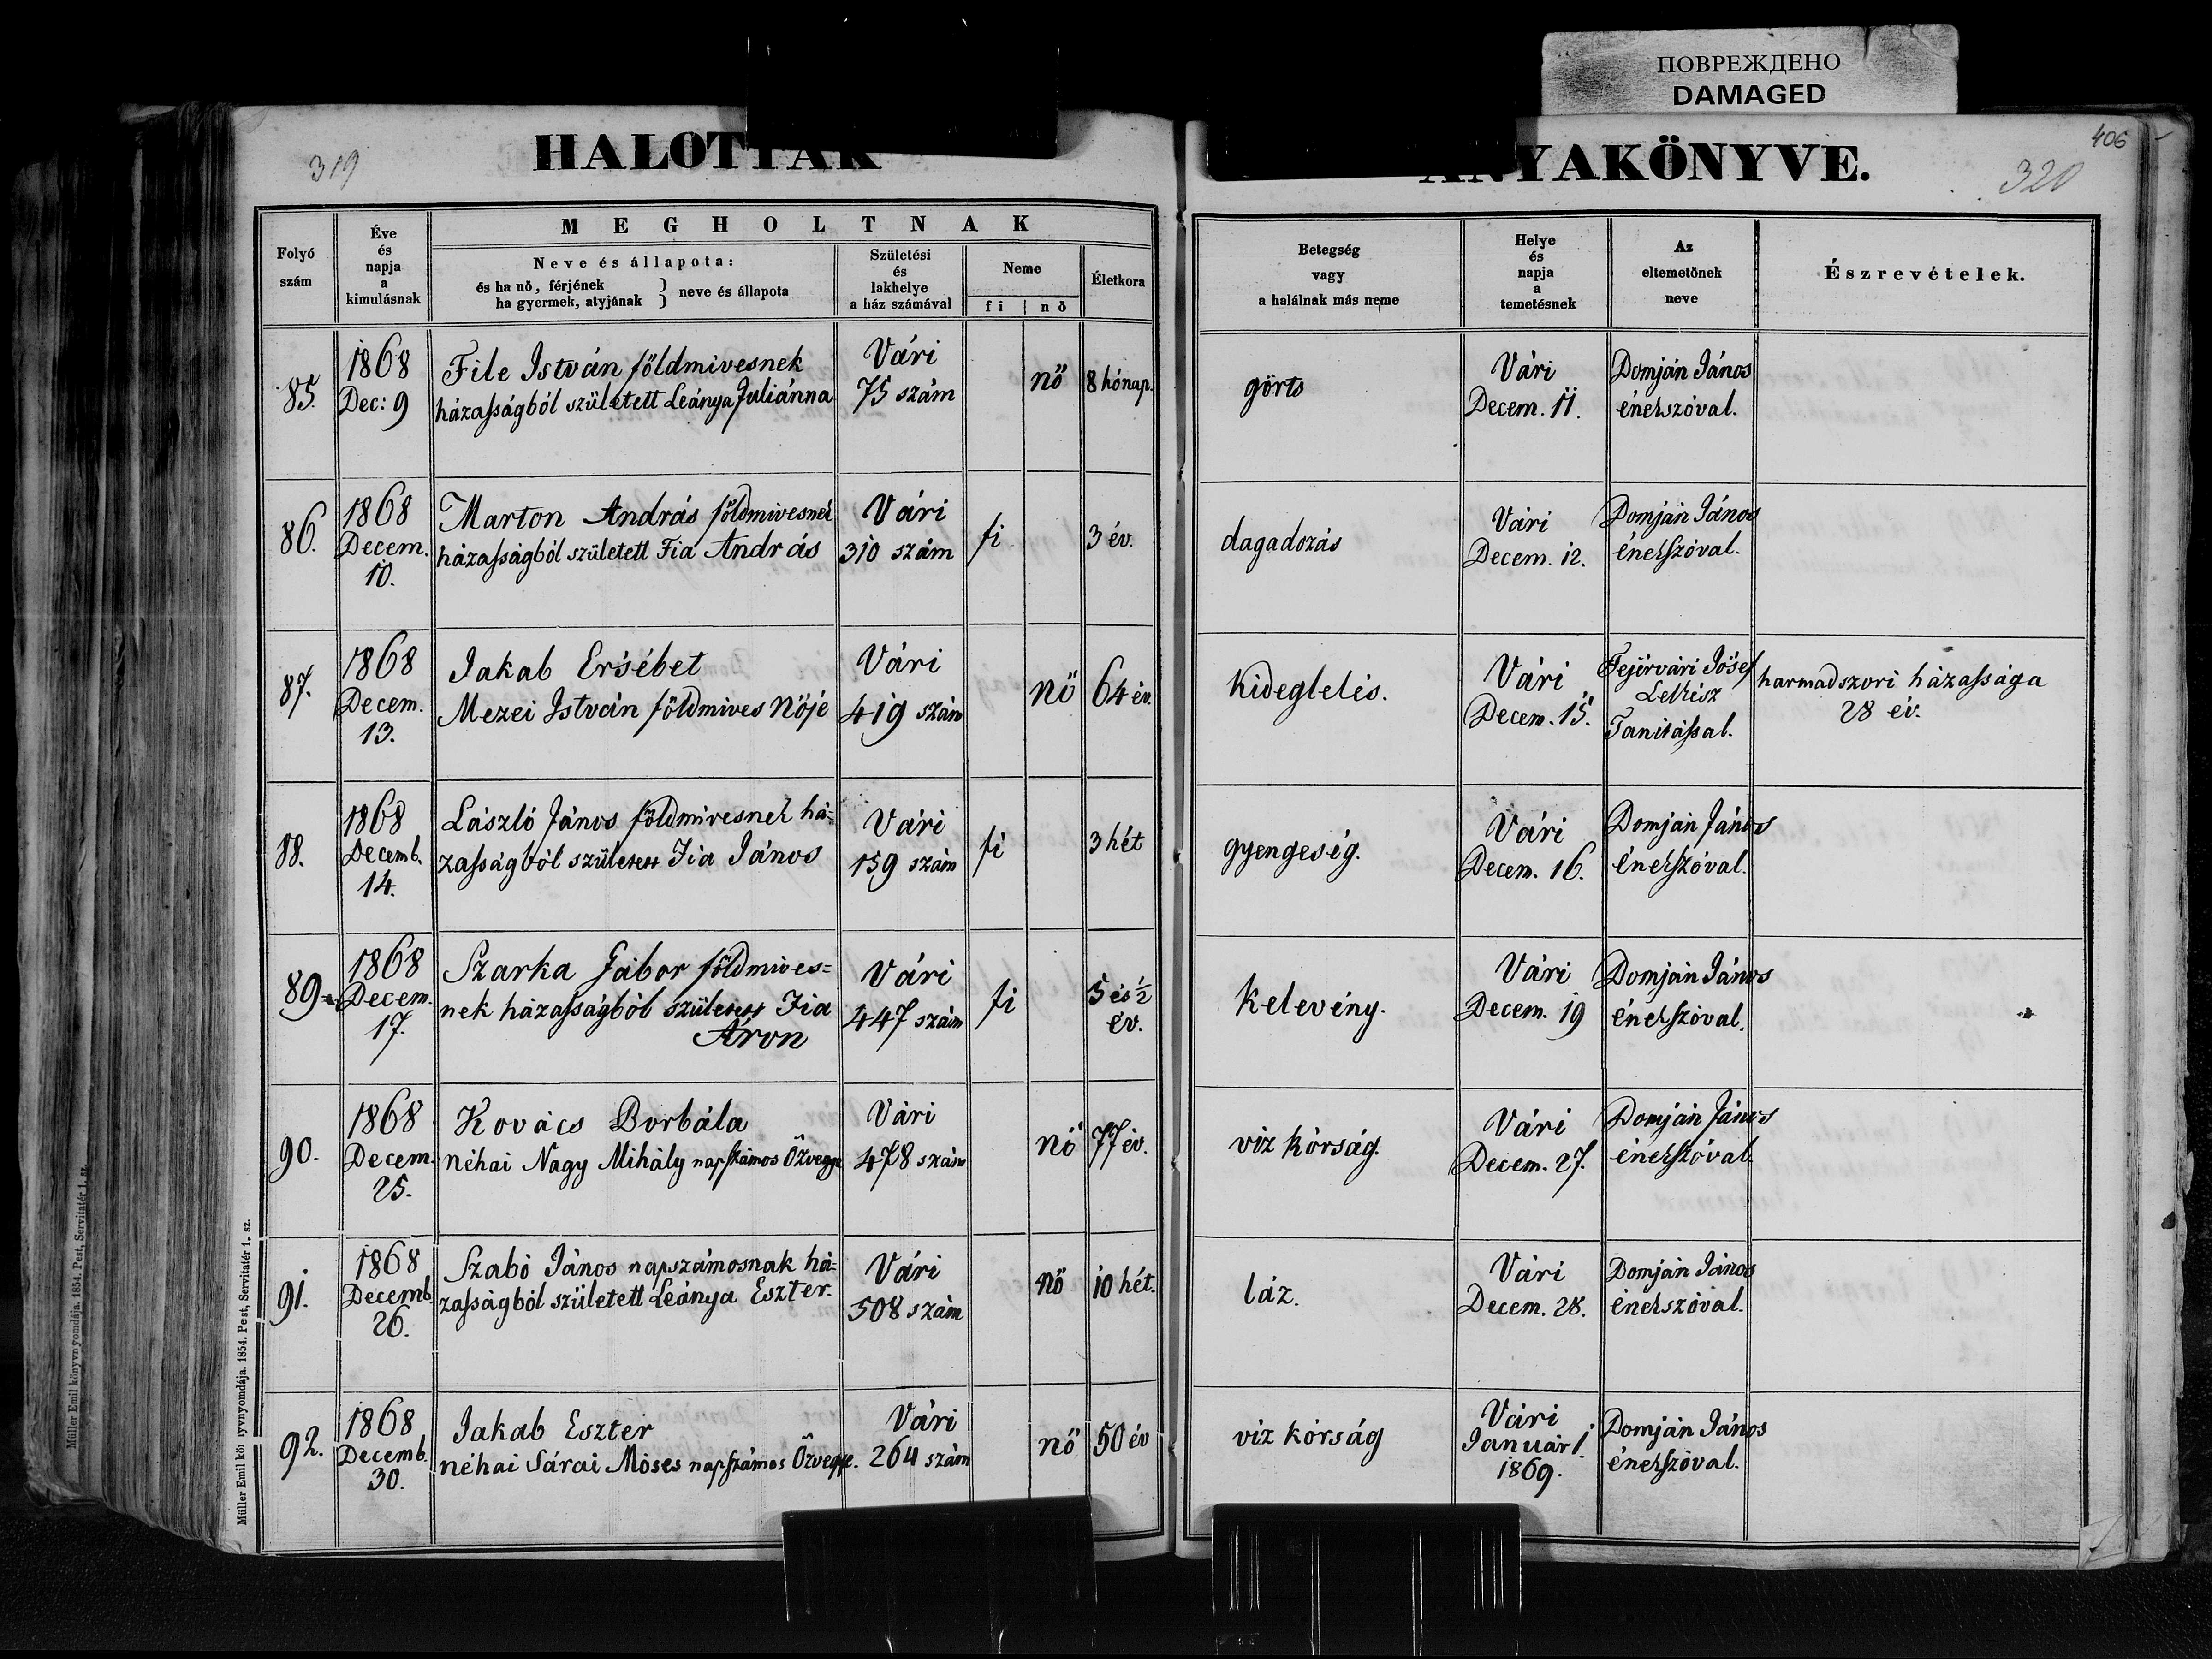 ПОВРЕЖДЕНО
DAMAGED
406
319
HALOTTAK
ANYAKÖNYVE.
320
Folyó
szám
Éve
és
napja
a
kimulásnak
MEGHOLTNAK
Neve és állapota:
és ha nő, férjének
ha gyermek, atyjának } neve és állapota
Születési
és
lakhelye
a ház számával
Neme
fi | nő
Életkora
Betegség
vagy
a halálnak más neme
Helye
és
napja
a
temetésnek
Az
eltemetőnek
neve
Észrevételek.
85.
1868
Dec: 9
File István földmivesnek
házasságból született Leánya Juliánna
Vári
75 szám
nő
8 hónap.
görts
Vári
Decem. 11.
Domján János
énekszóval.
86.
1868
Decem.
10.
Marton András földmivesnek
házasságból született Fia András
Vári
310 szám
fi
3 év.
dagadozás
Vári
Decem. 12.
Domján János
énekszóval.
87.
1868
Decem.
13.
Jakab Ersébet
Mezei István földmives Nőjé
Vári
419 szám
nő
64 év.
hideglelés.
Vári
Decem. 15.
Fejérvári Jósef
Lelkész
Tanitással.
harmadszori házassága
28 év.
88.
1868
Decemb.
14.
László János földmivesnek há-
zasságból született Fia János
Vári
159 szám
fi
3 hét
gyengeség.
Vári
Decem. 16.
Domján János
énekszóval.
89.
1868
Decem.
17.
Szarka Gábor földmives=
nek házasságból született Fia
Áron
Vári
447 szám
fi
5 és ½
év.
kelevény.
Vári
Decem. 19
Domján János
énekszóval.
90.
1868
Decem.
25.
Kovács Borbála
néhai Nagy Mihály napszámos Özvegye
Vári
478 szám
nő
77 év.
viz kórság.
Vári
Decem. 27.
Domján János
énekszóval.
91.
1868
Decemb.
26.
Szabó János napszámosnak há-
zasságból született Leánya Eszter.
Vári
508 szám
nő
10 hét.
láz.
Vári
Decem. 28.
Domján János
énekszóval.
92.
1868
Decemb.
30.
Jakab Eszter
néhai Sárai Móses napszámos Özvegye.
Vári
264 szám
nő
50 év
viz kórság
Vári
Január 1.
1869.
Domján János
énekszóval.
Müller Emil könyvnyomdája. 1854. Pest, Servitatér 1. sz.
Müller Emil könyvnyomdája. 1854. Pest, Servitatér 1. sz.